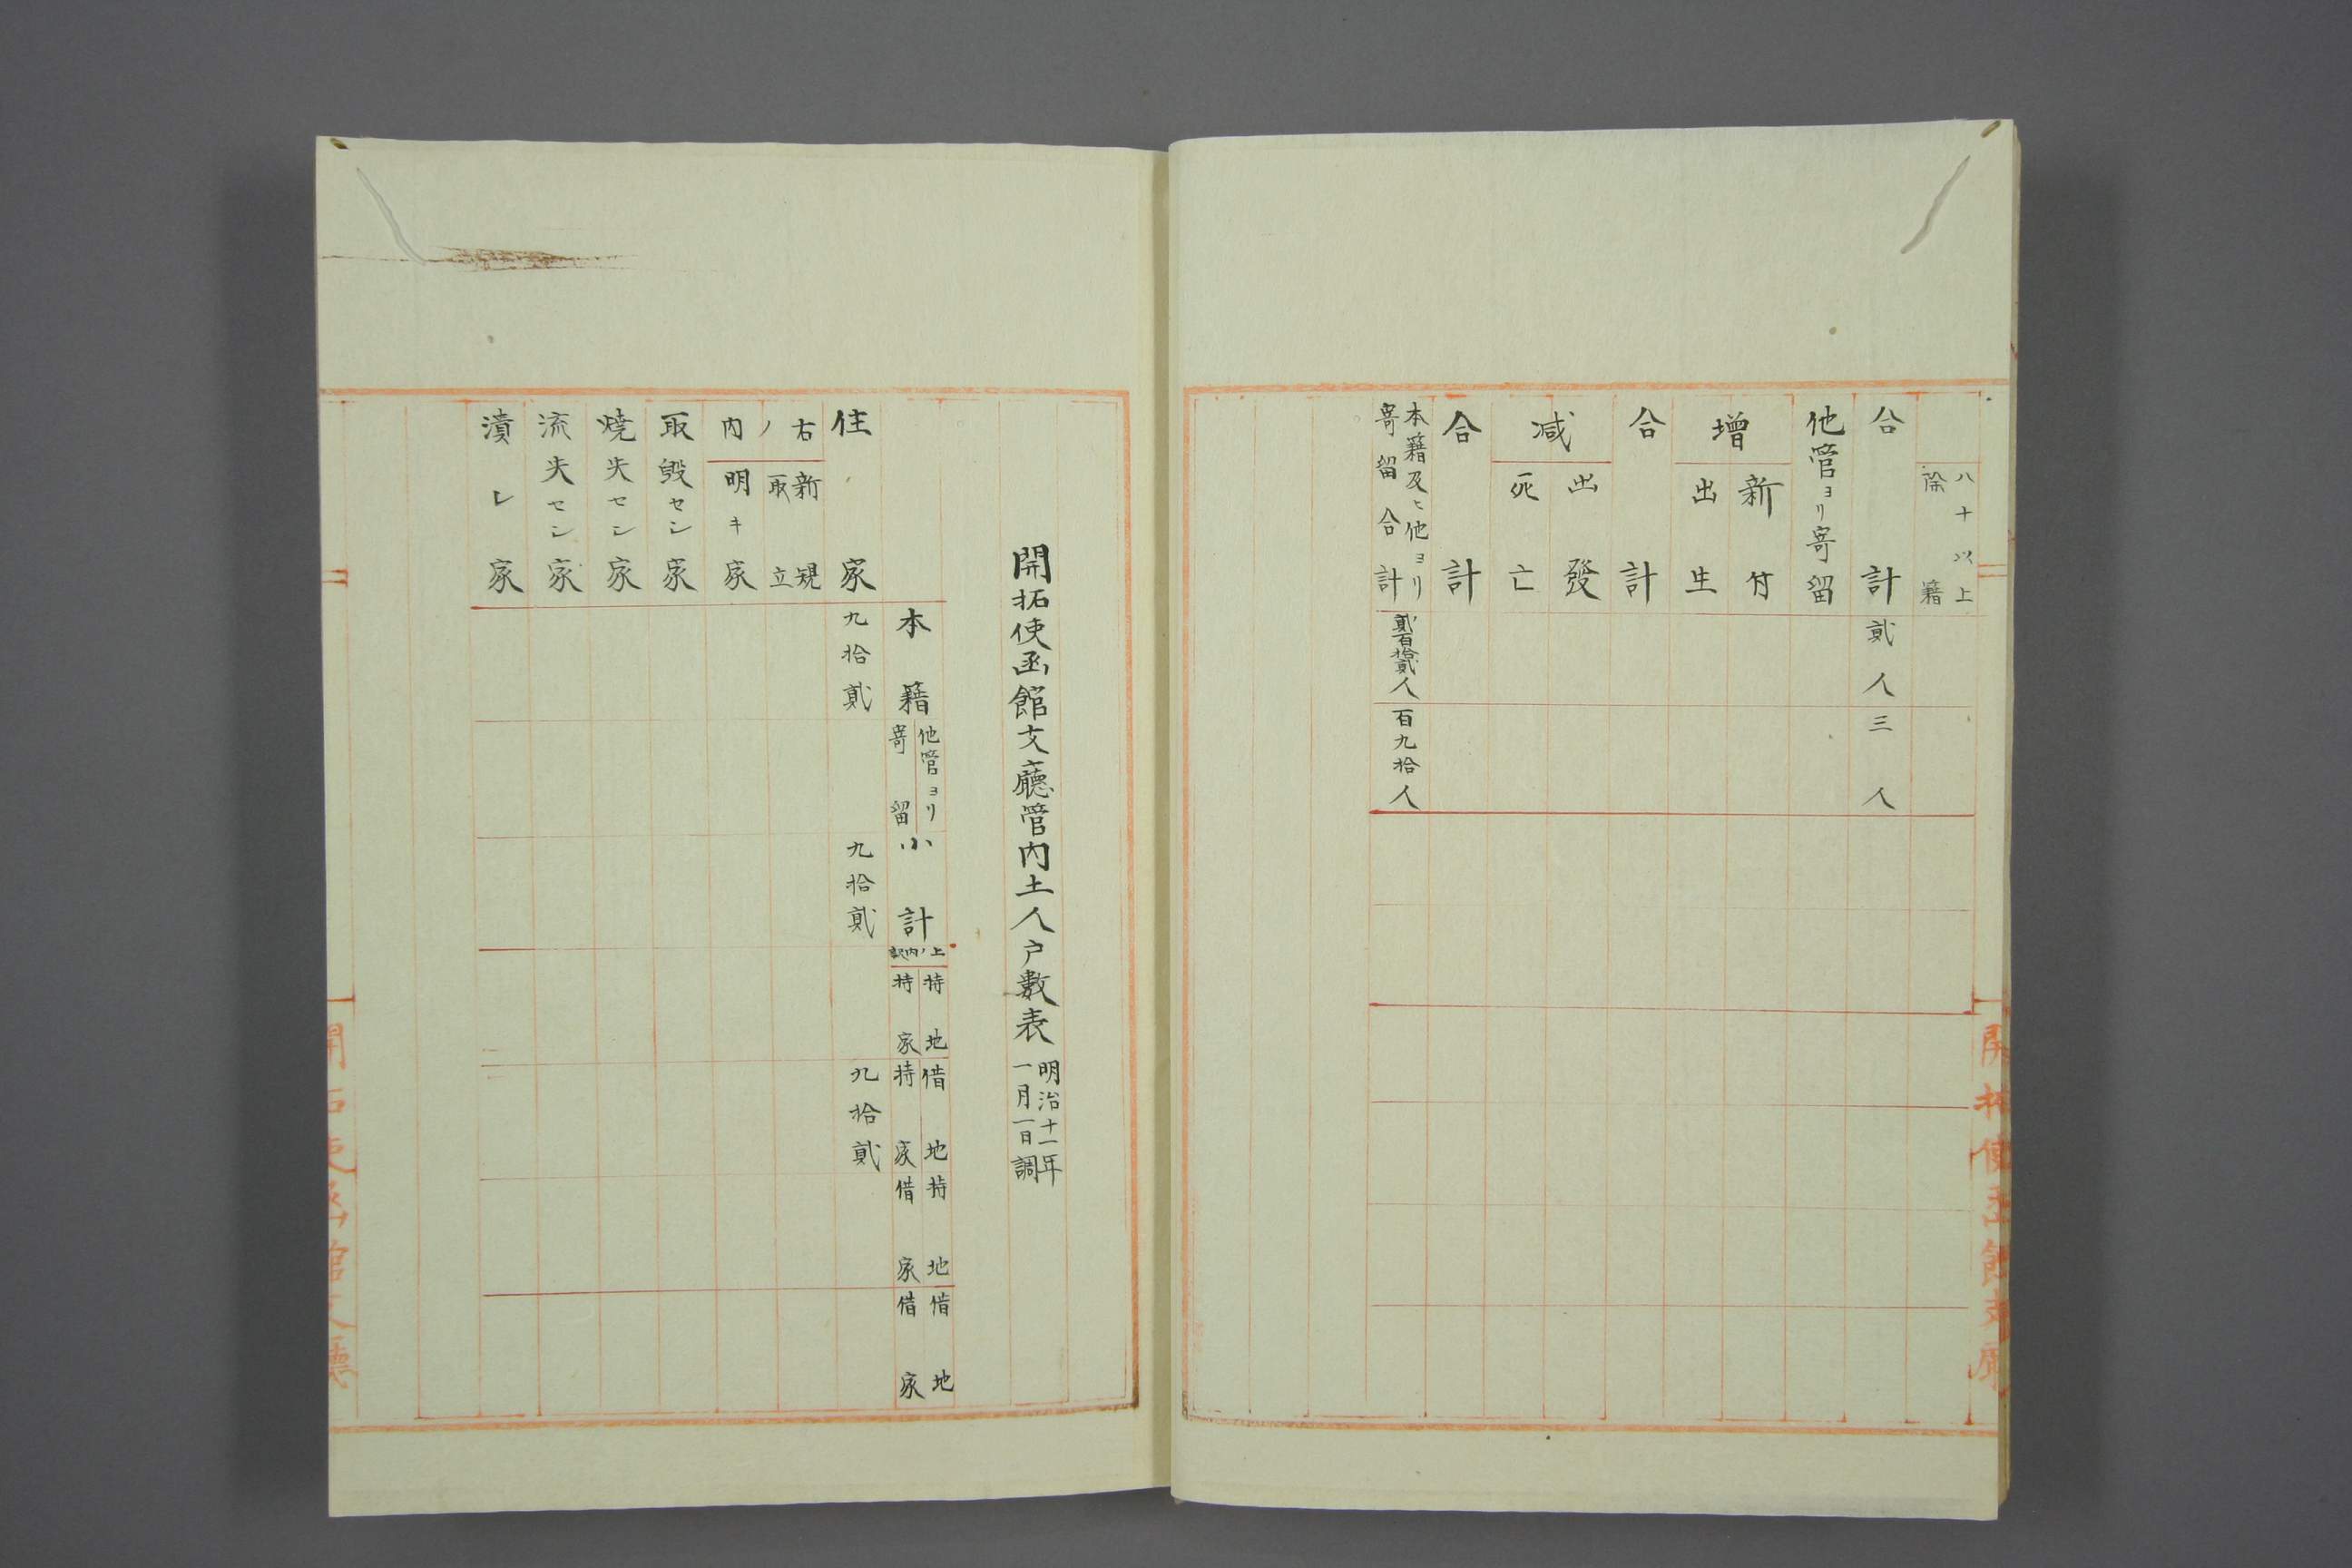 八十以上
除籍
合計 貳人 三人
他管ヨリ寄留
增
新付
出生
合計
減
出發
死亡
合計
本籍及ヒ他ヨリ
寄留合計 貳百拾貳人 百九拾人
開拓使函館支廳
開拓使函館支廳管内土人戸數表 明治十一年
一月一日調
本籍 他管ヨリ
寄留 小計 上ノ内訳 持地
持家 借地
持家 持地
借家 借地
借家
住家 九拾貳 九拾貳 九拾貳
右ノ内
新規
取立
明キ家
取毀セシ家
燒失セシ家
流失セシ家
潰レ家
開拓使函館支廳